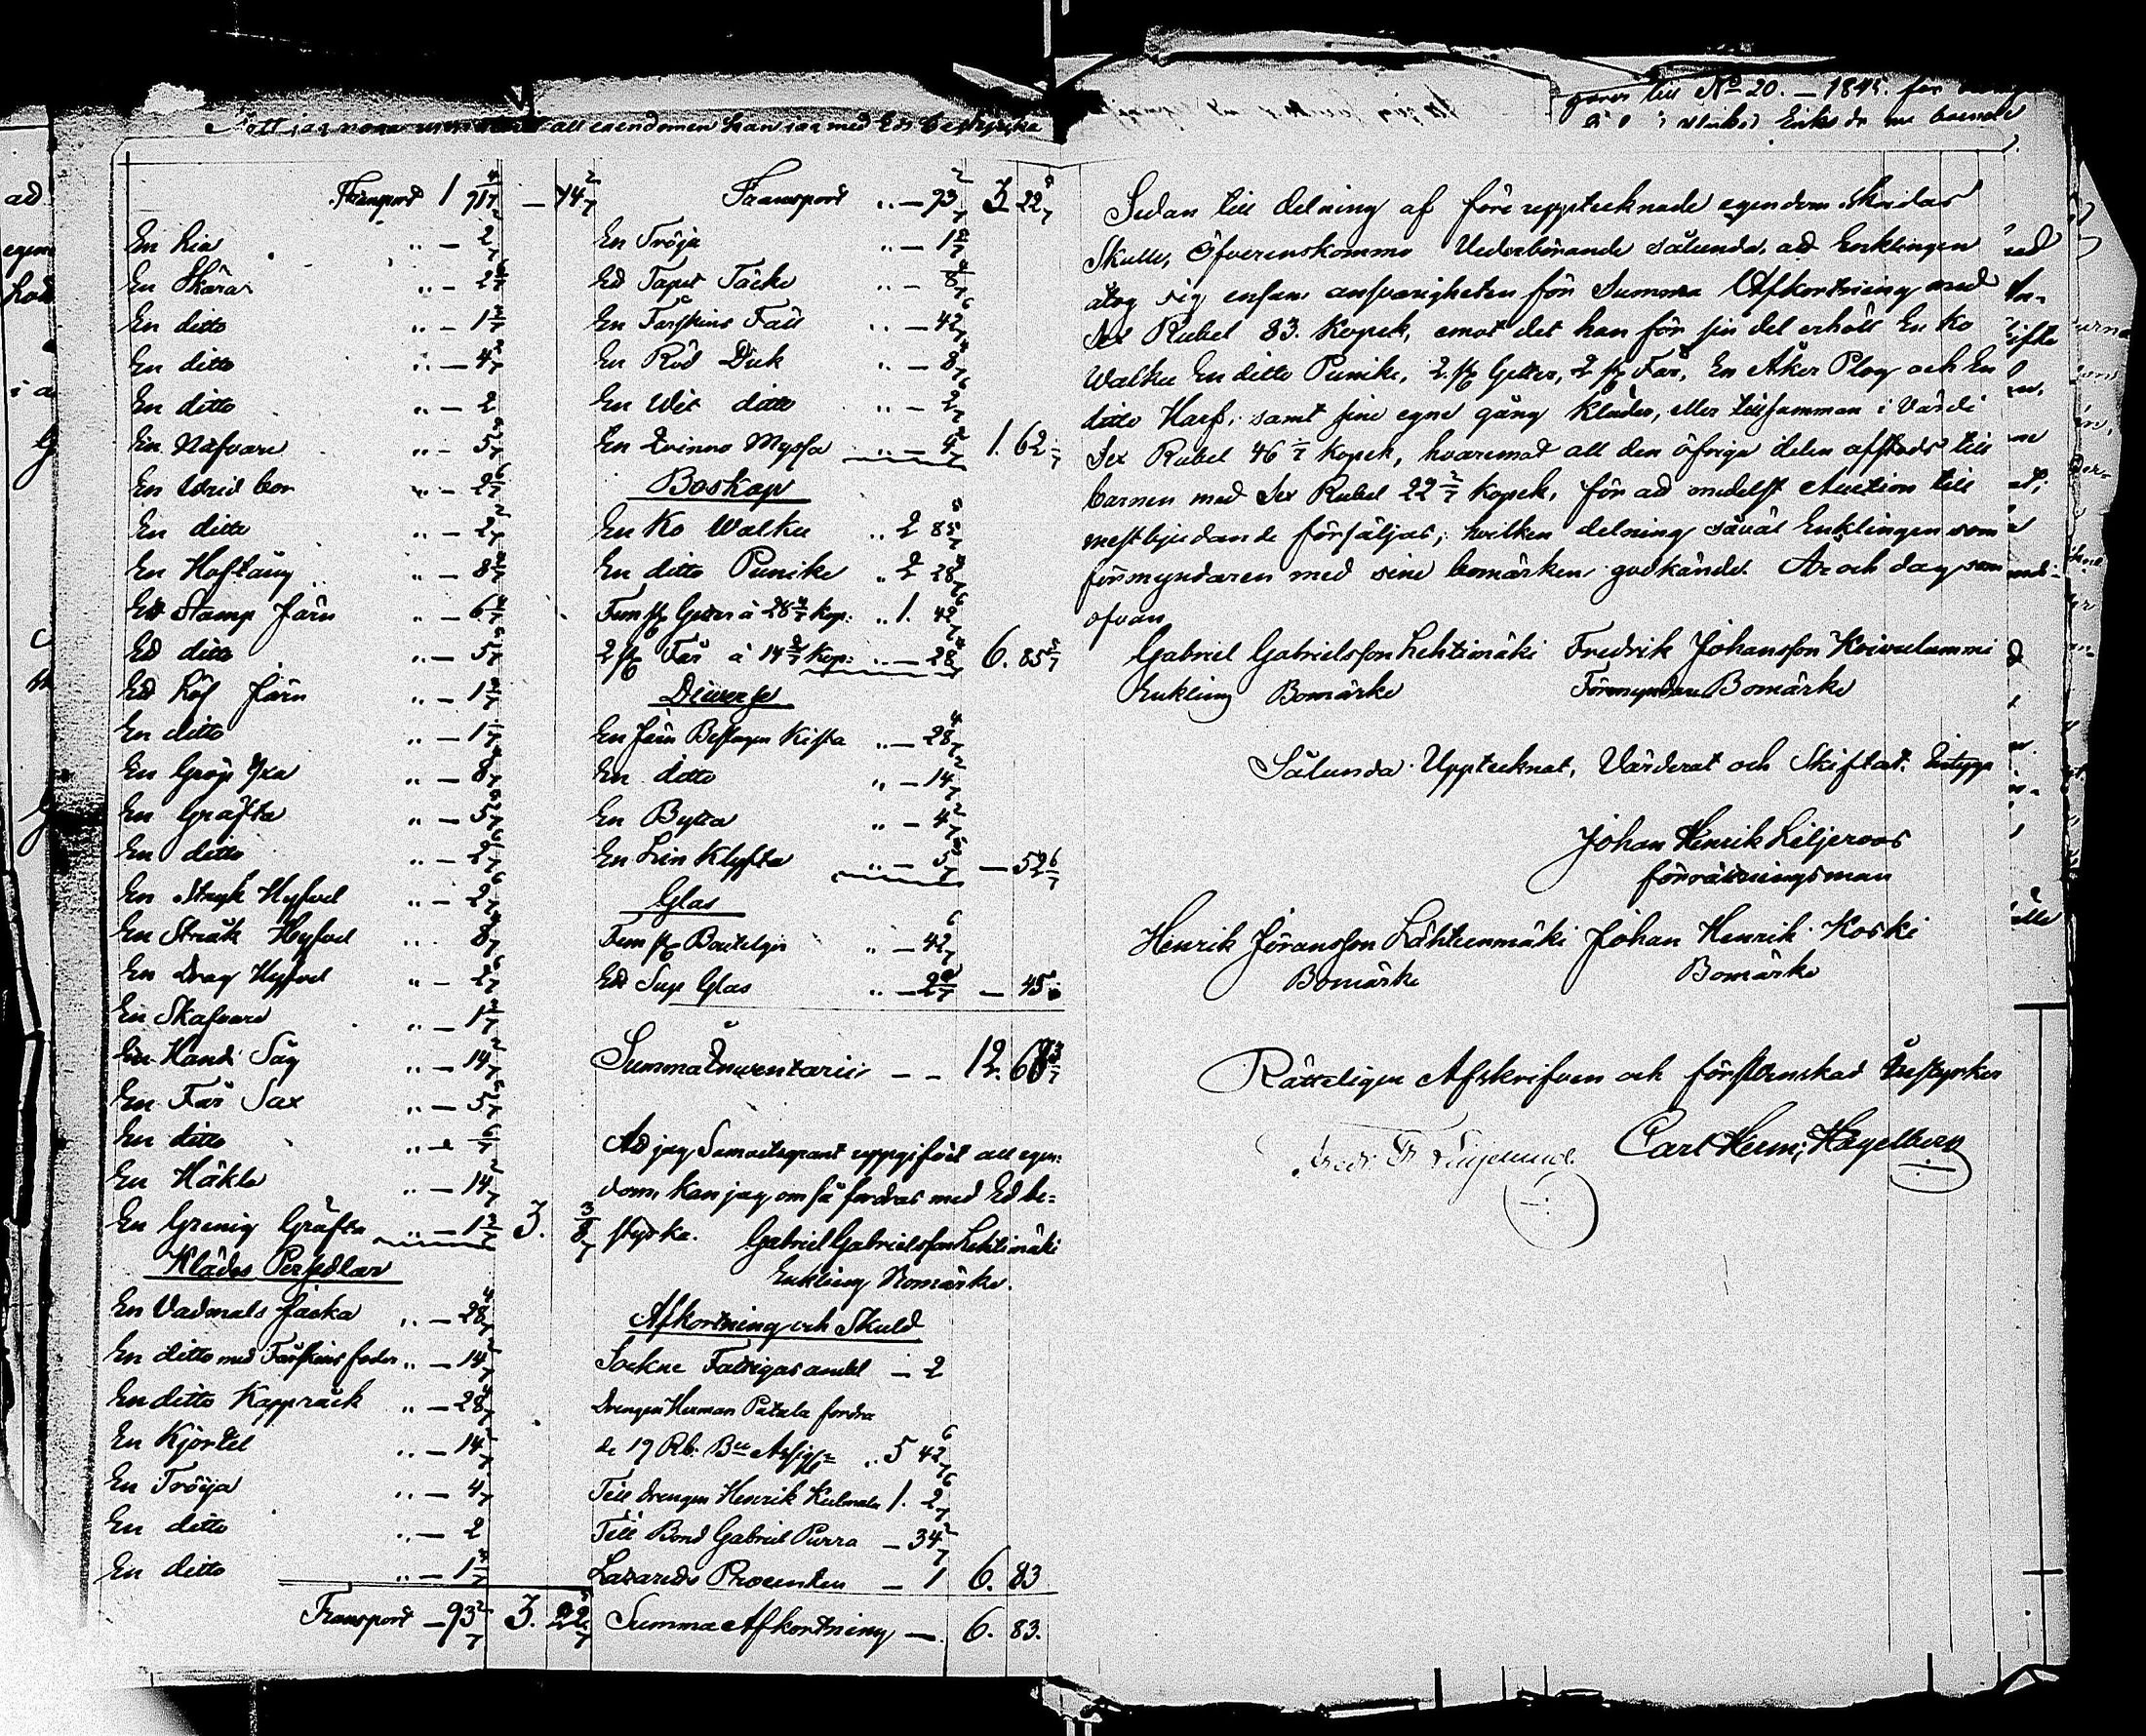 Transport 1 91 4/7 — 14 2/7
En Lia „ — 2
En Skära „ — 2
En ditto „ — 1
En ditto „ — 4 2/7
En ditto „ — 2
En Nafvare „ — 5
En Wrid bor „ — 2 6/7
En ditto „ — 2
En Hoftång „ — 8 4/7
Ett Stamp Järn „ — 6
Ett ditto „ — 5
Ett Löf Järn „ — 1
En ditto „ — 1
En Gröp Yxa „ — 8 4/7
En Gräfta „ — 5
En ditto „ — 2 6/7
En Stryk Hyfvel „ — 2 6/7
En Stråk Hyfvel „ 8
En Drag Hyfvel „ — 2 6/7
En Skafvare „ — 1
En Hand Såg „ — 14 2/7
En Får Sax „ — 5
En ditto „ — 6/7
En Häkla „ — 14 2/7
En Grenig Gräfta „ — 1 3/7 3. 8 3/7
Klädes Persedlar
En Vadmals Jacka „ — 28 4/7
En ditto med Fårskins foder „ — 14 2/7
En ditto Kappråck „ — 28 4/7
En Kjortel „ — 14 2/7
En Tröija „ — 4
En ditto „ — 2
En ditto „ — 1
Transport — 93 2/7 3. 22
Transport „ — 93 2/7 3 22
En Tröja „ — 1
Ett Taput Täcke „ — 8 4/7
En Fårskins Fäll „ — 42 6/7
En Röd Duk „ — 8 4/7
En Wit ditto „ — 2 6/7
En Qvinno Myssa „ — 4 2/7 1. 62
Boskap
En Ko Walku „ 2 85 5/7
En ditto Punike „ 2 28 4/7
Fem st Getter à 28 4/7 kop: „ 1. 42 6/7
2 st Får à 14 2/7 kop: „ — 28 4/7 6. 85 5/7
Diverse
En Järn Beslagen Kista „ — 28 4/7
En ditto „ — 14 2/7
En Bytta „ — 4 2/7
En Lin Klyfta „ — 5 — 52 6/7
Glas
Fem st Bouteljer „ — 42 6/7
Ett Sup Glas „ — 2 — 45
Summa Inventarii — — 12. 68
Att jag Samvetsgrant uppgifvit all egen=
dom, kan jag om så fordras med Ed be=
styrka. Gabriel Gabrielsson Lehtimäki
Enkling Bomärke.
Afkortning och Skuld
Sockne Fattigas andel — 2
Drengen Herman Patala fordra
de 19 Rb. B Assign „ 5 42 6/7
Till drengen Henrik Kulmala 1. 2 6/7
Till Bond Gabriel Purra — 34 2/7
Lazaretts Procenten — 1 6. 83
Summa Afkortning — 6. 83.
till No 20. — 1845. för
Sedan till delning af före upptecknade egendom skridas
skulle, öfverenskommo Vederbörande sålunda, att Enklingen
åtog sig ensam ansvarigheten för Summa Afkortning med
Sex Rubel 83. Kopek, emot det han för sin del erhöll En Ko
Walku En ditto Punike, 2 st Getter, 2 st Får, En Åker Plog och En
ditto Harf, samt sine egne gång kläder, eller tillsamman i värde
Sex Rubel 46 kopek, hvaremot all den öfriga delen afstods till
barnen med Sex Rubel 22 2/7 kopek, för att medelst Auction till
mestbjudande försäljas; hvilken delning såväl Enklingen som
förmyndaren med sine bomärken godkände. År och dag som
ofvan
Gabriel Gabrielsson Lehtimäki Fredrik Johansson Koivulammi
Enkling Bomärke Förmyndare Bomärke
Sålunda Upptecknat, Värderat och Skiftat. Intyga
Johan Henrik Liljeroos
förrättningsman
Henrik Jöransson Lähteenmäki Johan Henrik Koski
Bomärke Bomärke
Rätteligen Afskrifven och förstländskad Bestyrkes
Carl Herm; Hagelberg